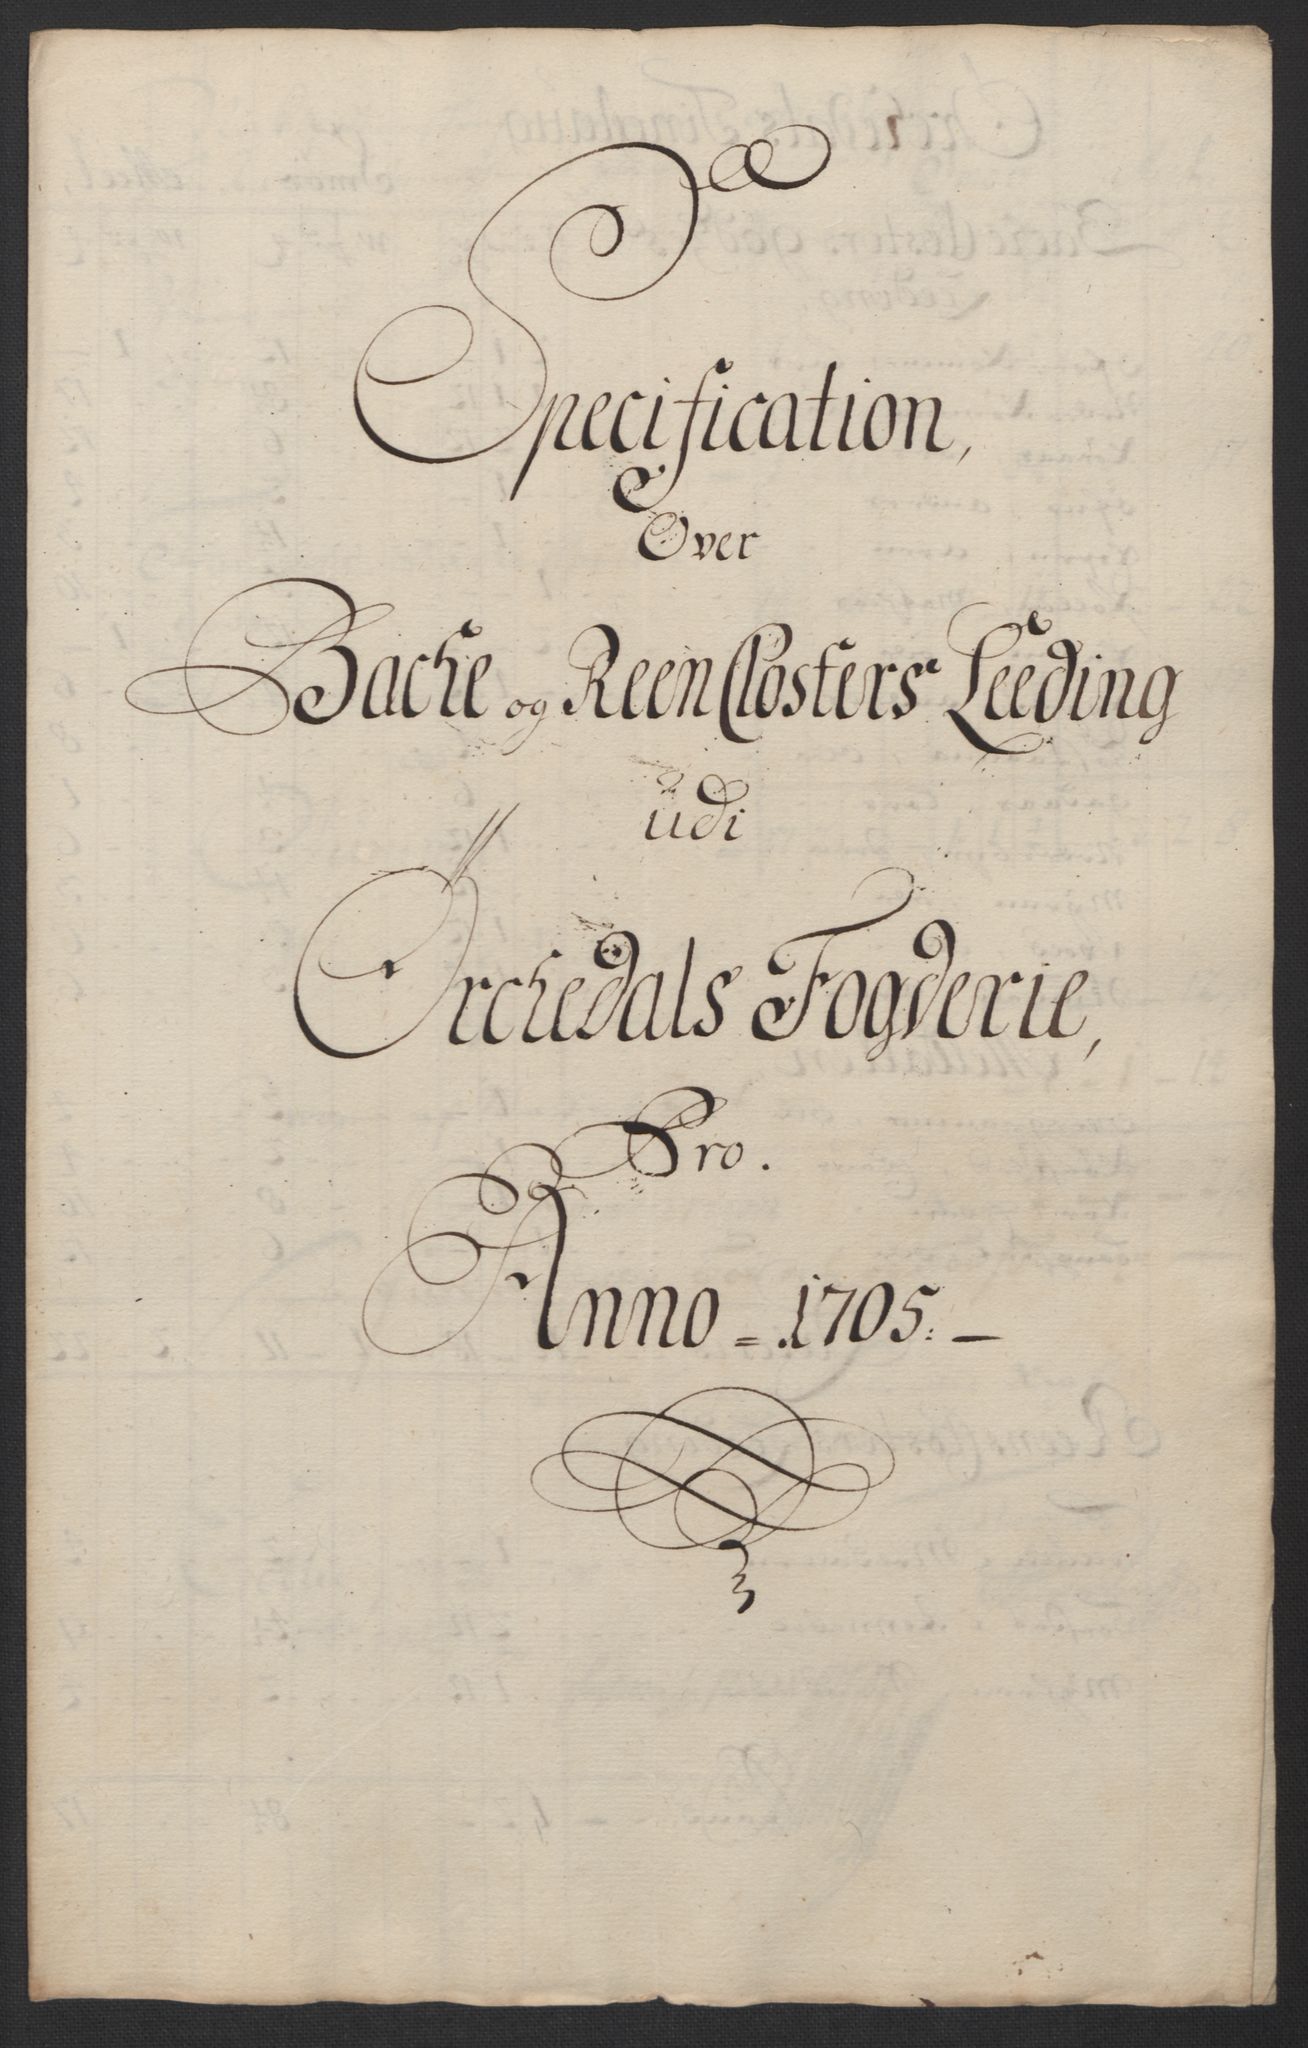 Specification,
Over
Bache og Reen Closters Leeding
udi
Orchedals Fogderie,
Pro.
Anno = 1705. —